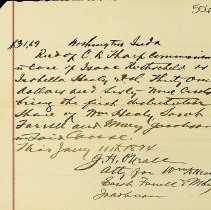 506
$31.69 Washington Inda
Recd of C. K. Tharp Commissioner
in Case of Isaac Rothschild vs
Isabella Healy et al Thirty One
dollars and Sixty Nine Cents
being the first distributive
Share of Wm Healy Sarah
Farrell and Mary
in Said Cause.
This Jany 11th 1894
J. H. O'Neall
Atty for Wm
Sarah Farrell &